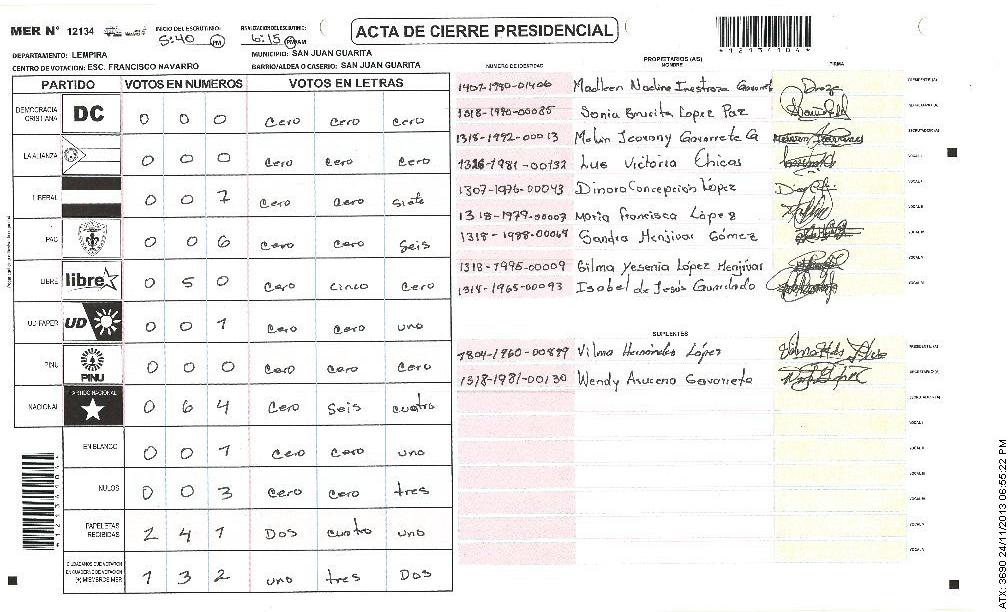 MER N° 12134 INICIO DEL ESCRUTINIO: 5:40 PM 6:15 PM AM
ACTA DE CIERRE PRESIDENCIAL
*12134104*
DEPARTAMENTO: LEMPIRA MUNICIPIO: SAN JUAN GUARITA
CENTRO DE VOTACION: ESC. FRANCISCO NAVARRO BARRIO/ALDEA O CASERIO: SAN JUAN GUARITA
PARTIDO VOTOS EN NUMEROS VOTOS EN LETRAS
DEMOCRACIA CRISTIANA DC 0 0 0 Cero Cero Cero
LA ALIANZA 0 0 0 Cero Cero Cero
LIBERAL 0 0 7 Cero Cero siete
PAC 0 0 6 Cero Cero Seis
LIBRE libre 0 5 0 Cero Cinco Cero
UD FAPER UD 0 0 1 Cero Cero uno
PINU PINU 0 0 0 Cero Cero Cero
NACIONAL PARTIDO NACIONAL 0 6 4 Cero Seis cuatro
EN BLANCO 0 0 1 Cero Cero uno
NULOS 0 0 3 Cero Cero tres
PAPELETAS RECIBIDAS 2 4 1 Dos cuatro uno
CIUDADANOS QUE VOTARON EN CUADERNO DE VOTACION (+) MIEMBROS MER 1 3 2 uno tres Dos
NUMERO DE IDENTIDAD PROPIETARIOS (AS) NOMBRE FIRMA
1407-1980-01406 Madleen Nadine Inestroza
1318-1990-00085 Sonia López Paz
1318-1992-00013
1326-1981-00132 Luis Victoria Chicas
1307-1976-00043 Dinora Concepcion López
1318-1979-00007 Maria francisca López
1318-1988-00069 Sandra Menjivar Gómez
1318-1995-00009 Gilma Yesenia López Menjivar
1314-1965-00093 Isabel de Jesús Guardado
SUPLENTES
1804-1960-00899 Vilma Hernández López
1318-1981-00130 Wendy Azucena Gavarrete
ATX: 3690 24/11/2013 06:55:22 PM